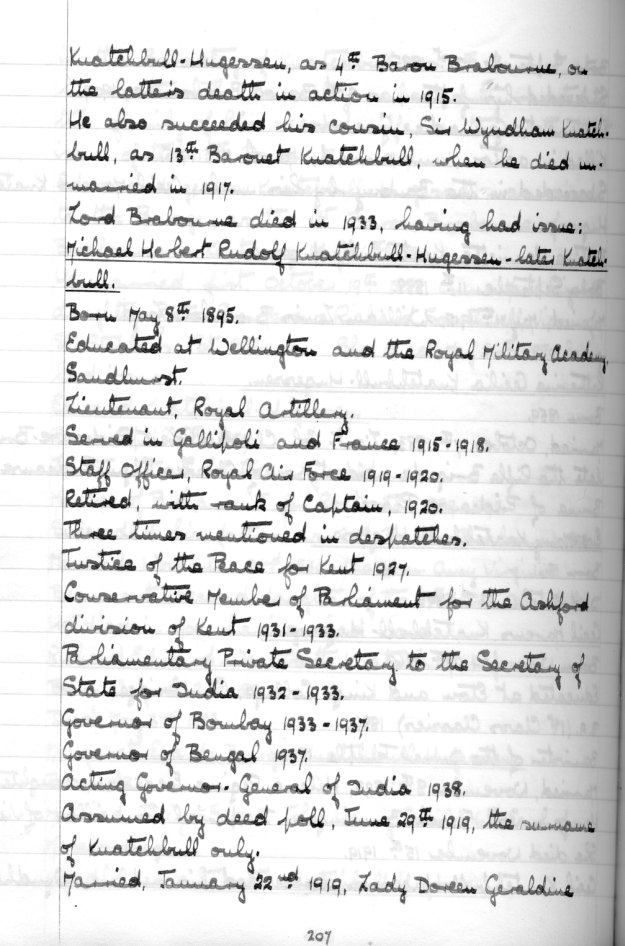 Knatchbull-Hugessen, as 4th Baron Brabourne, on
the latter's death in action in 1915.
He also succeeded his cousin, Sir Wyndham Knatch-
bull, as 13th Baronet Knatchbull, when he died un-
married in 1917.
Lord Brabourne died in 1933, having had issue:
Michael Herbert Rudolf Knatchbull-Hugessen - later Knatch-
bull.
Born May 8th 1895.
Educated at Wellington and the Royal Military Academy,
Sandhurst.
Lieutenant, Royal Artillery.
Served in Gallipoli and France 1915-1918.
Staff Officer, Royal Air Force 1919-1920.
Retired, with rank of Captain, 1920.
Three times mentioned in despatches.
Justice of the Peace for Kent 1927.
Conservative Member of Parliament for the Ashford
division of Kent 1931-1933.
Parliamentary Private Secretary to the Secretary of
State for India 1932-1933.
Governor of Bombay 1933-1937.
Governor of Bengal 1937.
Acting Governor-General of India 1938.
Assumed by deed poll, June 29th 1919, the surname
of Knatchbull only.
Married, January 22nd 1919, Lady Doreen Geraldine
207